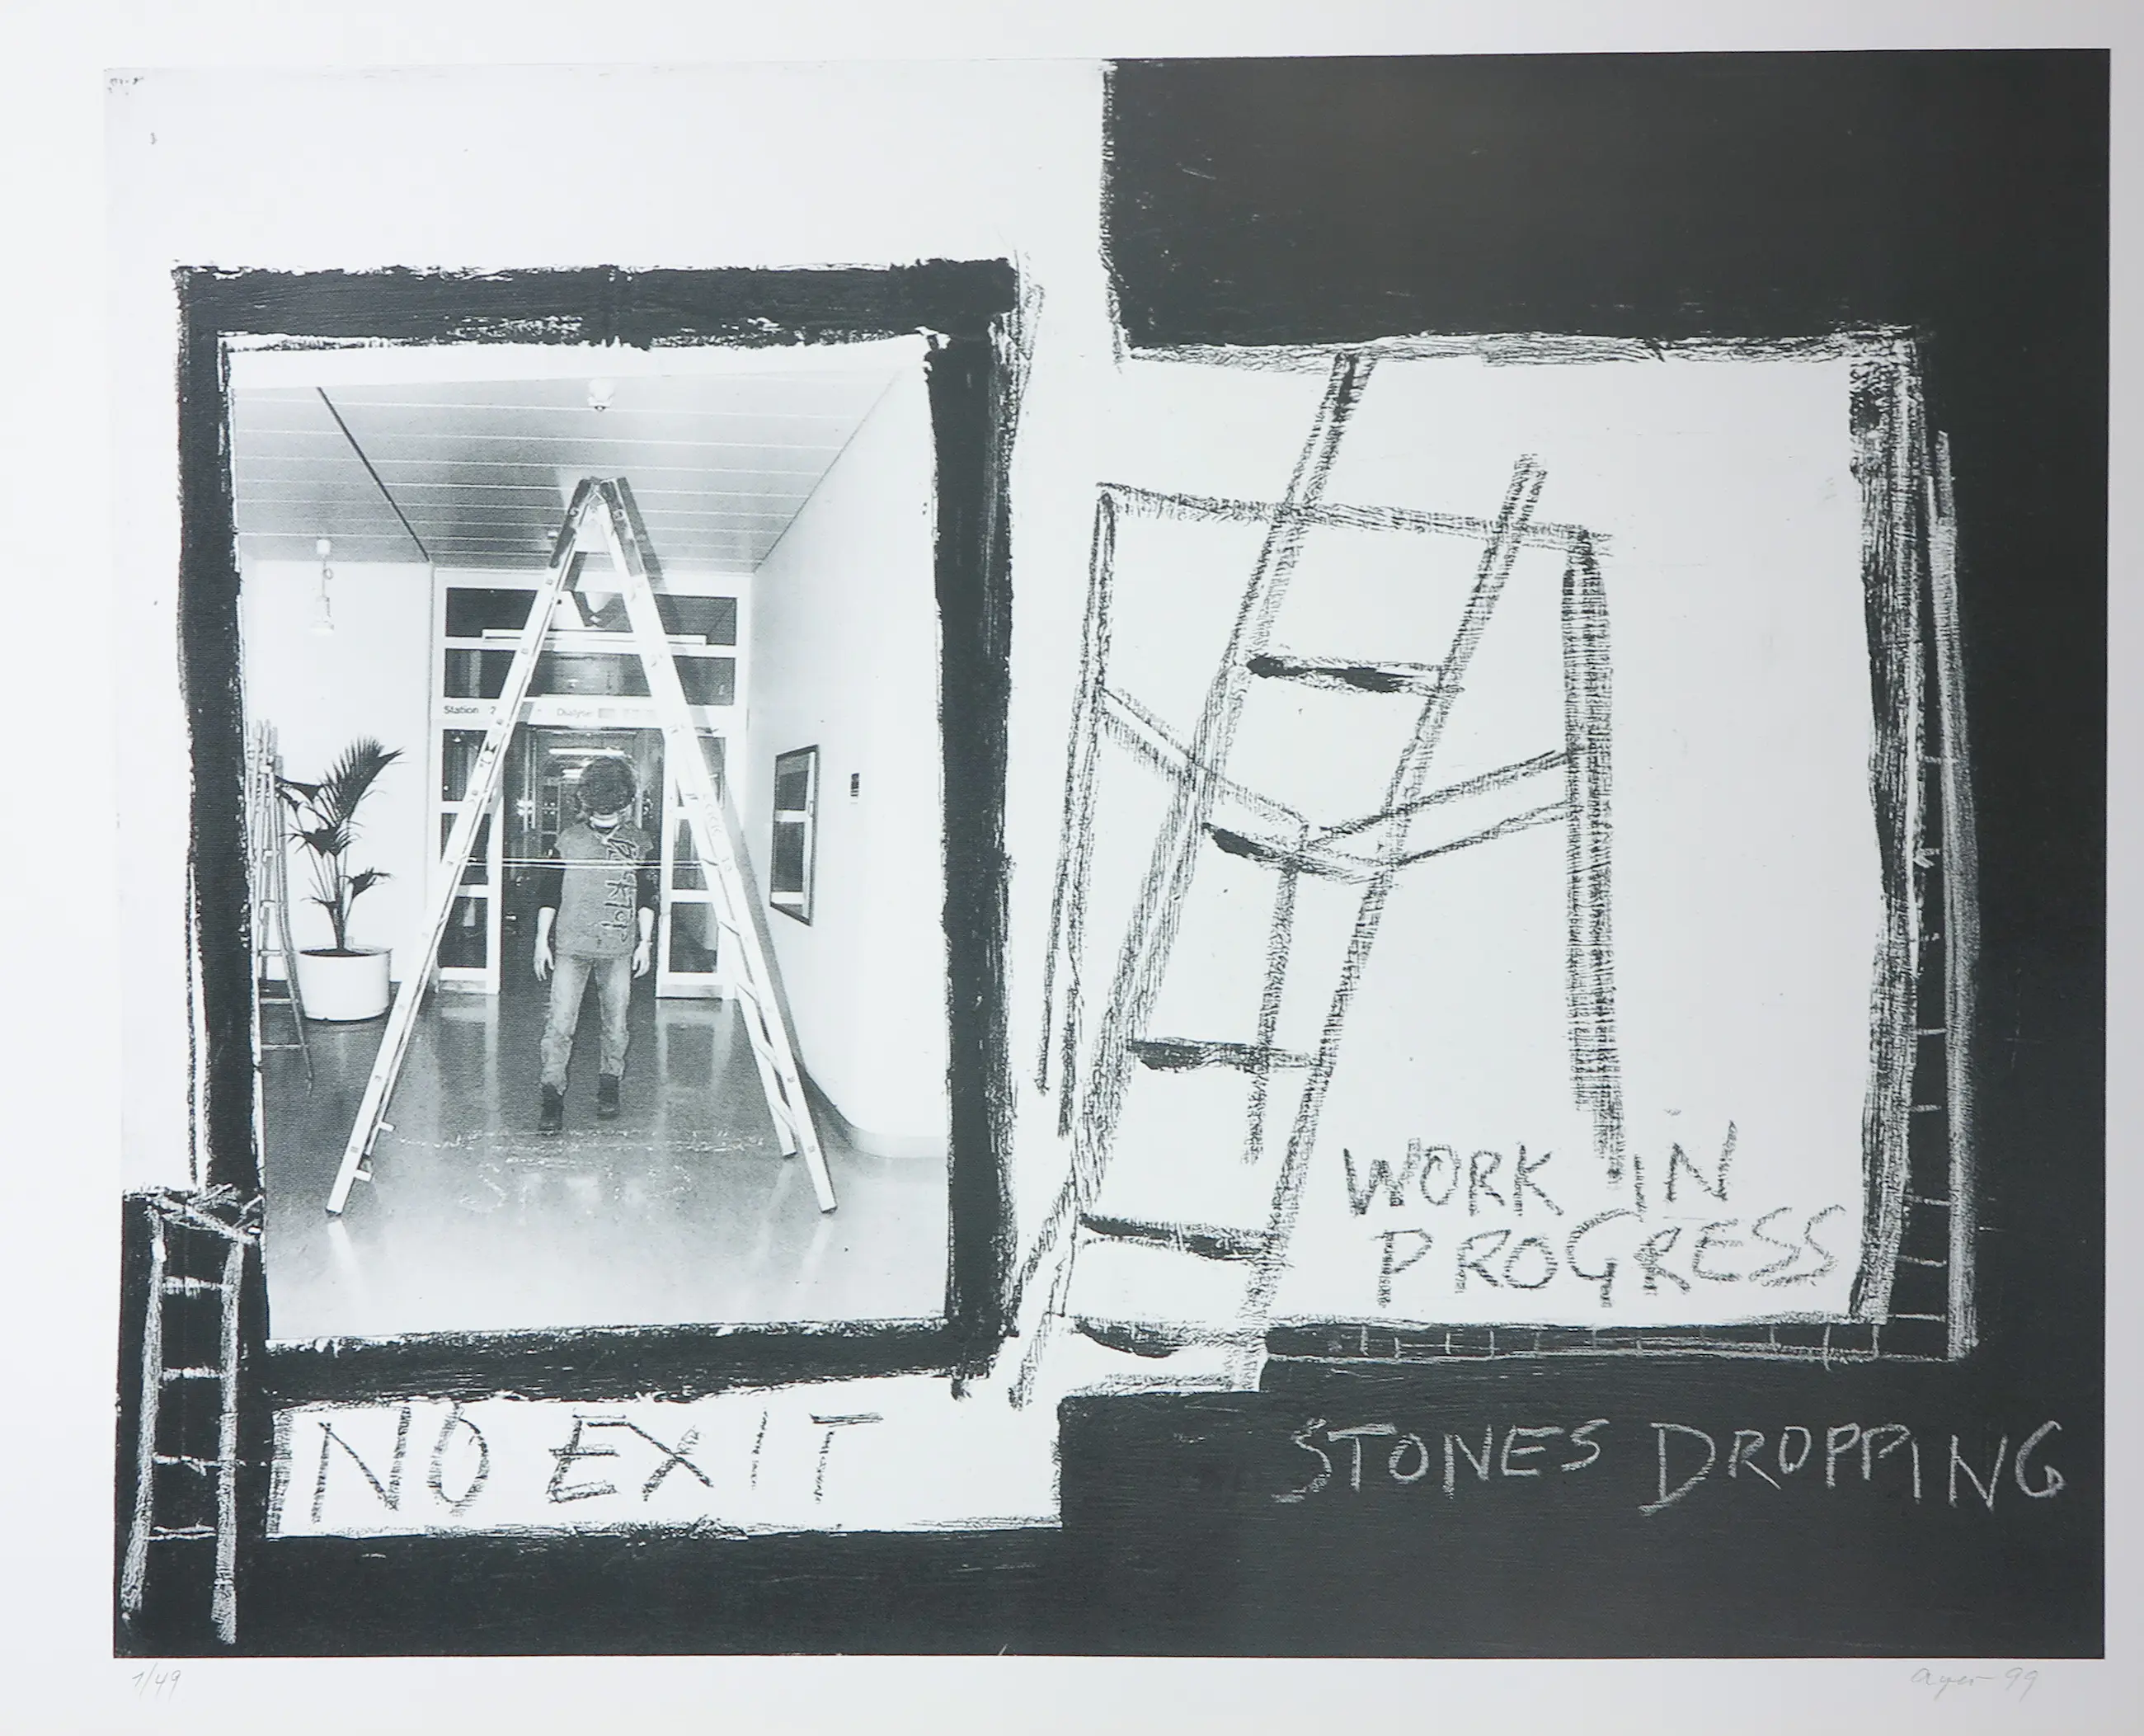 Station 2
Dialyse
WORK IN
PROGRESS
NO EXIT
STONES DROPPING
1/49
99